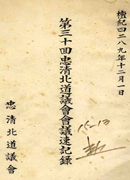 檀紀四二八九年十二月一日
第三十回忠淸北道議會會議速記錄
忠淸北道議會